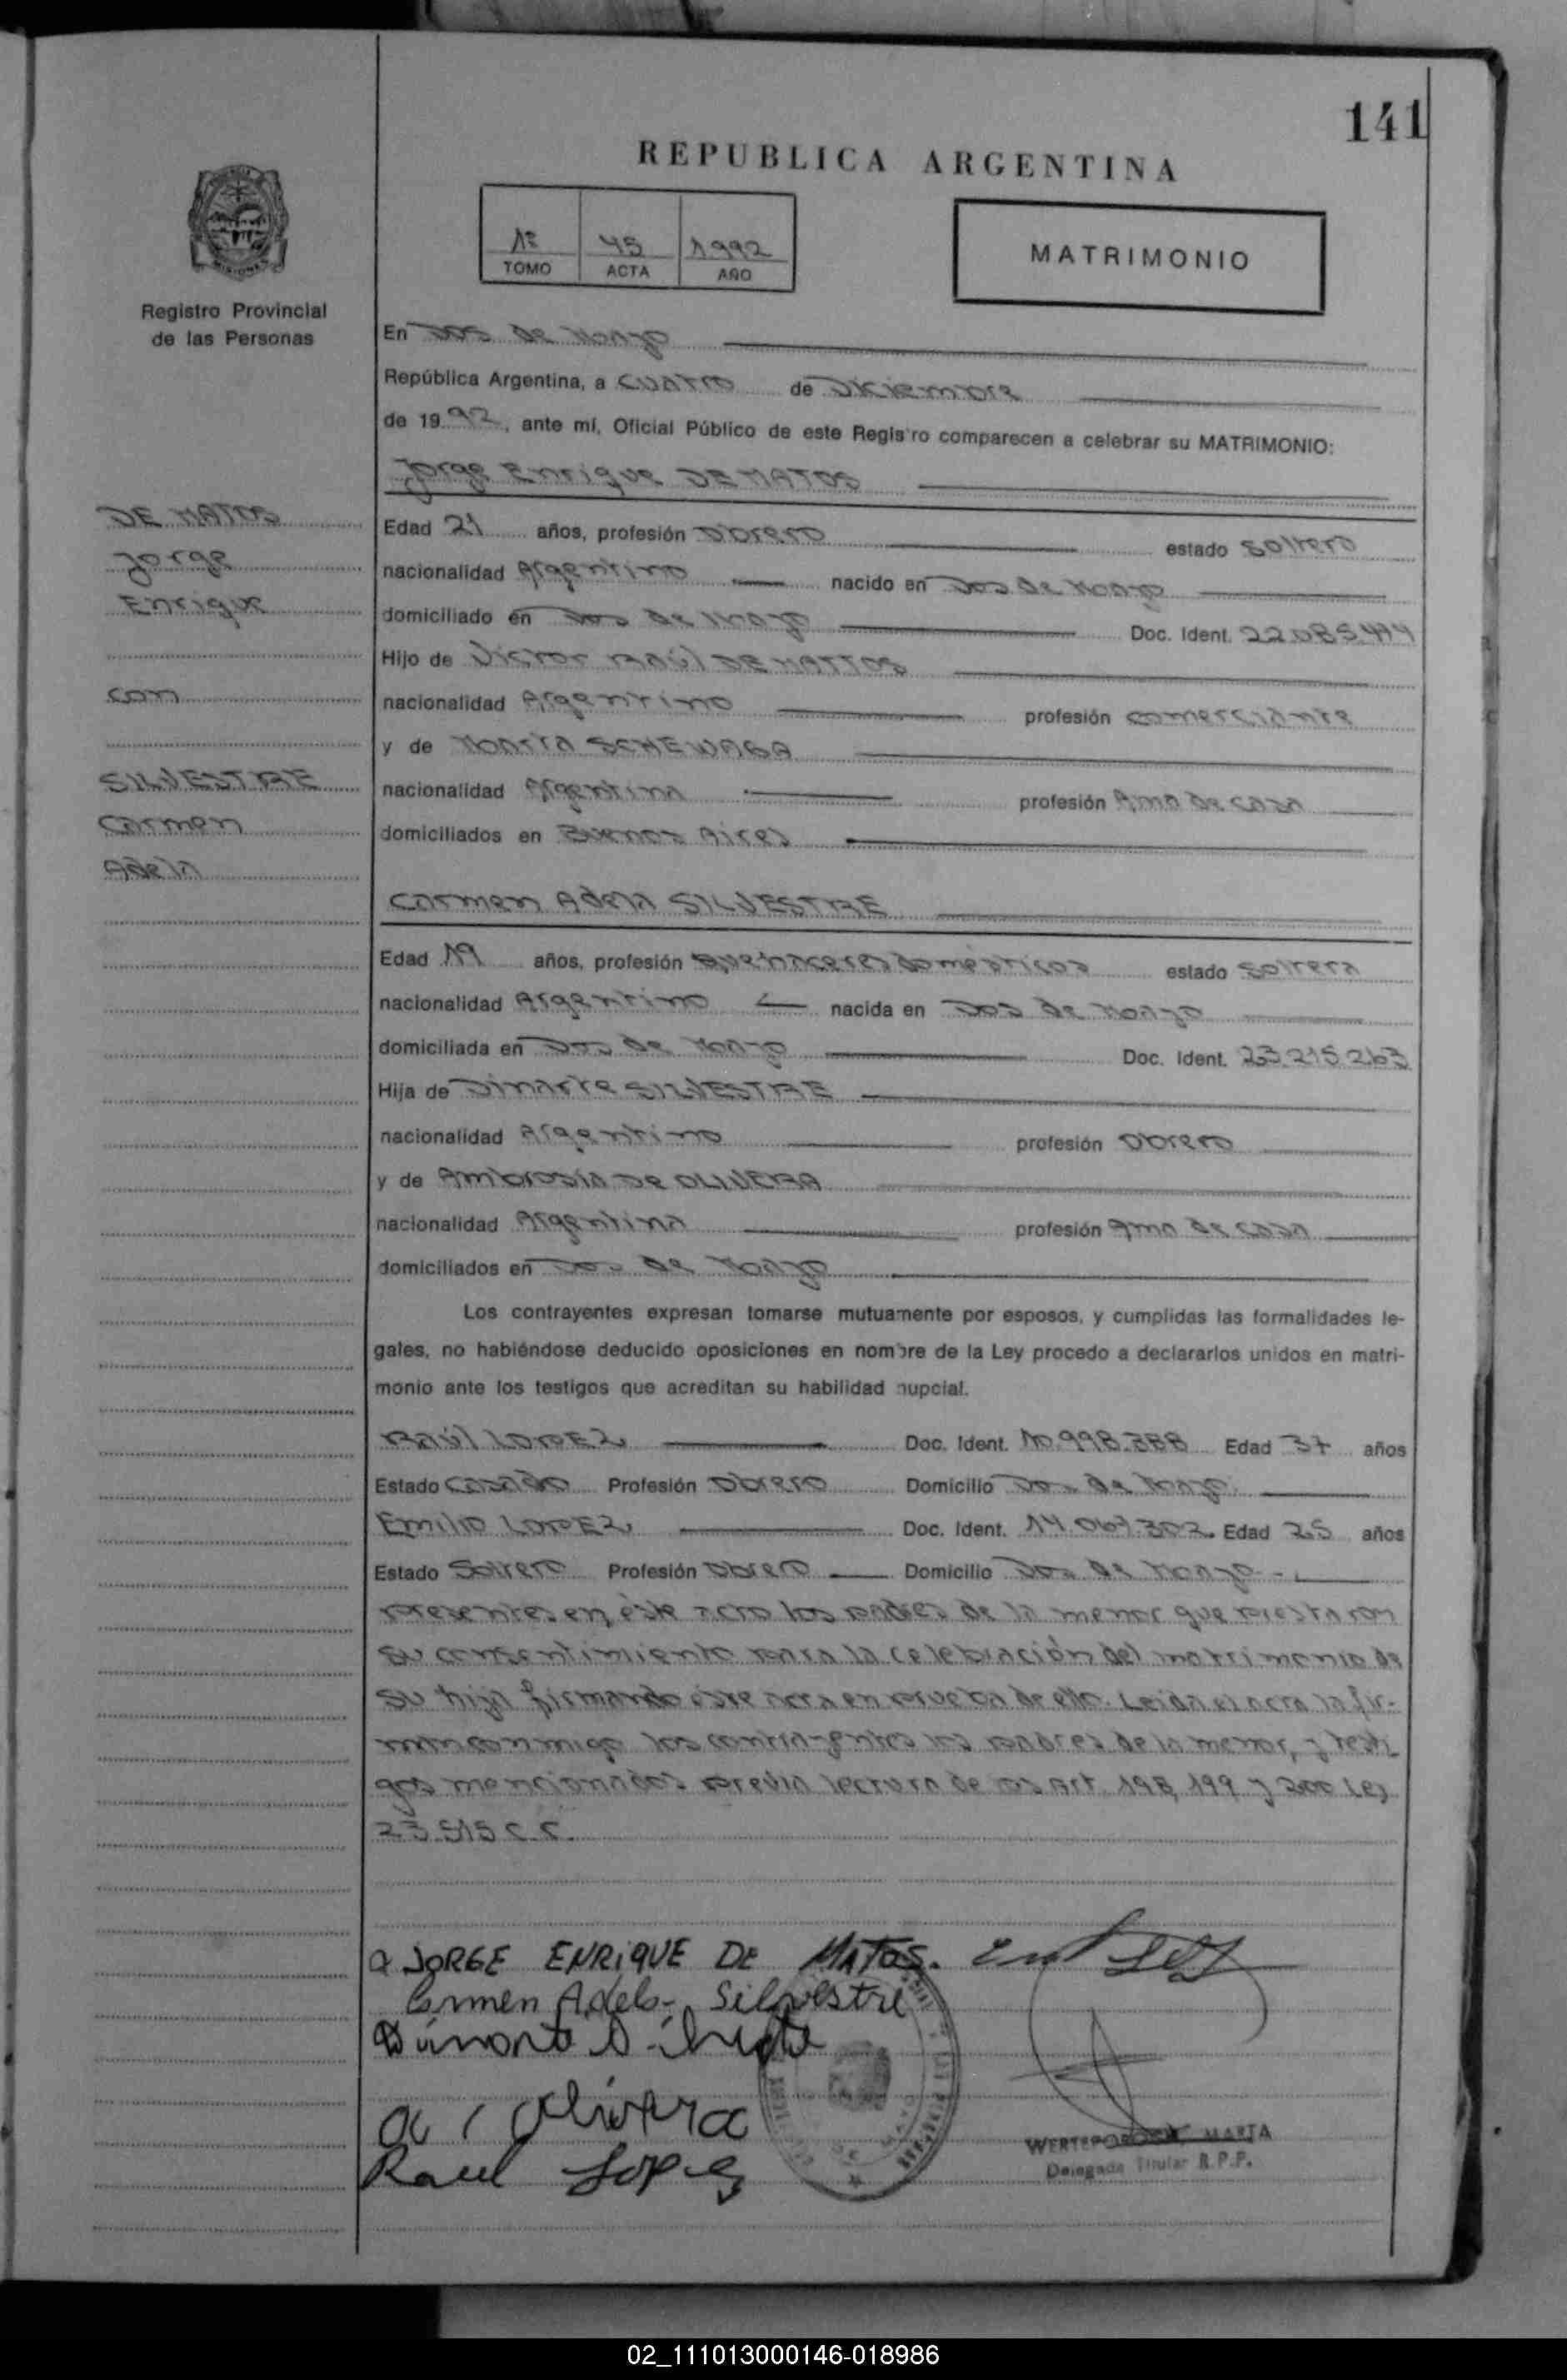 141
REPUBLICA ARGENTINA
1º 45 1992
TOMO ACTA AÑO
MATRIMONIO
Registro Provincial
de las Personas
En Dos de Mayo
República Argentina, a cuatro de Diciembre
de 1992, ante mí, Oficial Público de este Registro comparecen a celebrar su MATRIMONIO:
Jorge Enrique DE MATOS
DE MATOS
Jorge
Enrique
con
SILVESTRE
Carmen
Adela
Edad 21 años, profesión Obrero estado soltero
nacionalidad Argentino nacido en Dos de Mayo
domiciliado en Dos de Mayo Doc. Ident. 22.085.414
Hijo de Victor Raúl DE MATTOS
nacionalidad Argentino profesión comerciante
y de Marta SCHEWAGA
nacionalidad Argentina profesión Ama de casa
domiciliados en Buenos Aires
Carmen Adela SILVESTRE
Edad 19 años, profesión quehaceres domésticos estado soltera
nacionalidad Argentino nacida en Dos de Mayo
domiciliada en Dos de Mayo Doc. Ident. 23.215.263
Hija de Dinarte SILVESTRE
nacionalidad Argentino profesión Obrero
y de Ambrosia De OLIVERA
nacionalidad Argentina profesión Ama de casa
domiciliados en Dos de Mayo
Los contrayentes expresan tomarse mutuamente por esposos, y cumplidas las formalidades le-
gales, no habiéndose deducido oposiciones en nombre de la Ley procedo a declararlos unidos en matri-
monio ante los testigos que acreditan su habilidad nupcial.
Raúl LOPEZ Doc. Ident. 10.998.388 Edad 37 años
Estado Casado Profesión Obrero Domicilio Dos de Mayo
Emilio LOPEZ Doc. Ident. 14.067.302. Edad 25 años
Estado Soltero Profesión Obrero Domicilio Dos de Mayo
presentes en éste acto los padres de la menor que prestaron
su consentimiento para la celebración del matrimonio de
su hija firmando éste acta en prueba de ello. Leida el acta la fir-
man conmigo los contrayentes los padres de la menor, y testi
gos mencionados previa lectura de los Art. 198, 199 y 200 Ley
23.515 C.C.
JORGE ENRIQUE DE MATOS.
Carmen Adela Silvestre
Dinarte Silvestre
Olivera
Raul Lopez
MARTA
Delegada Titular R.P.P.
02_111013000146-018986